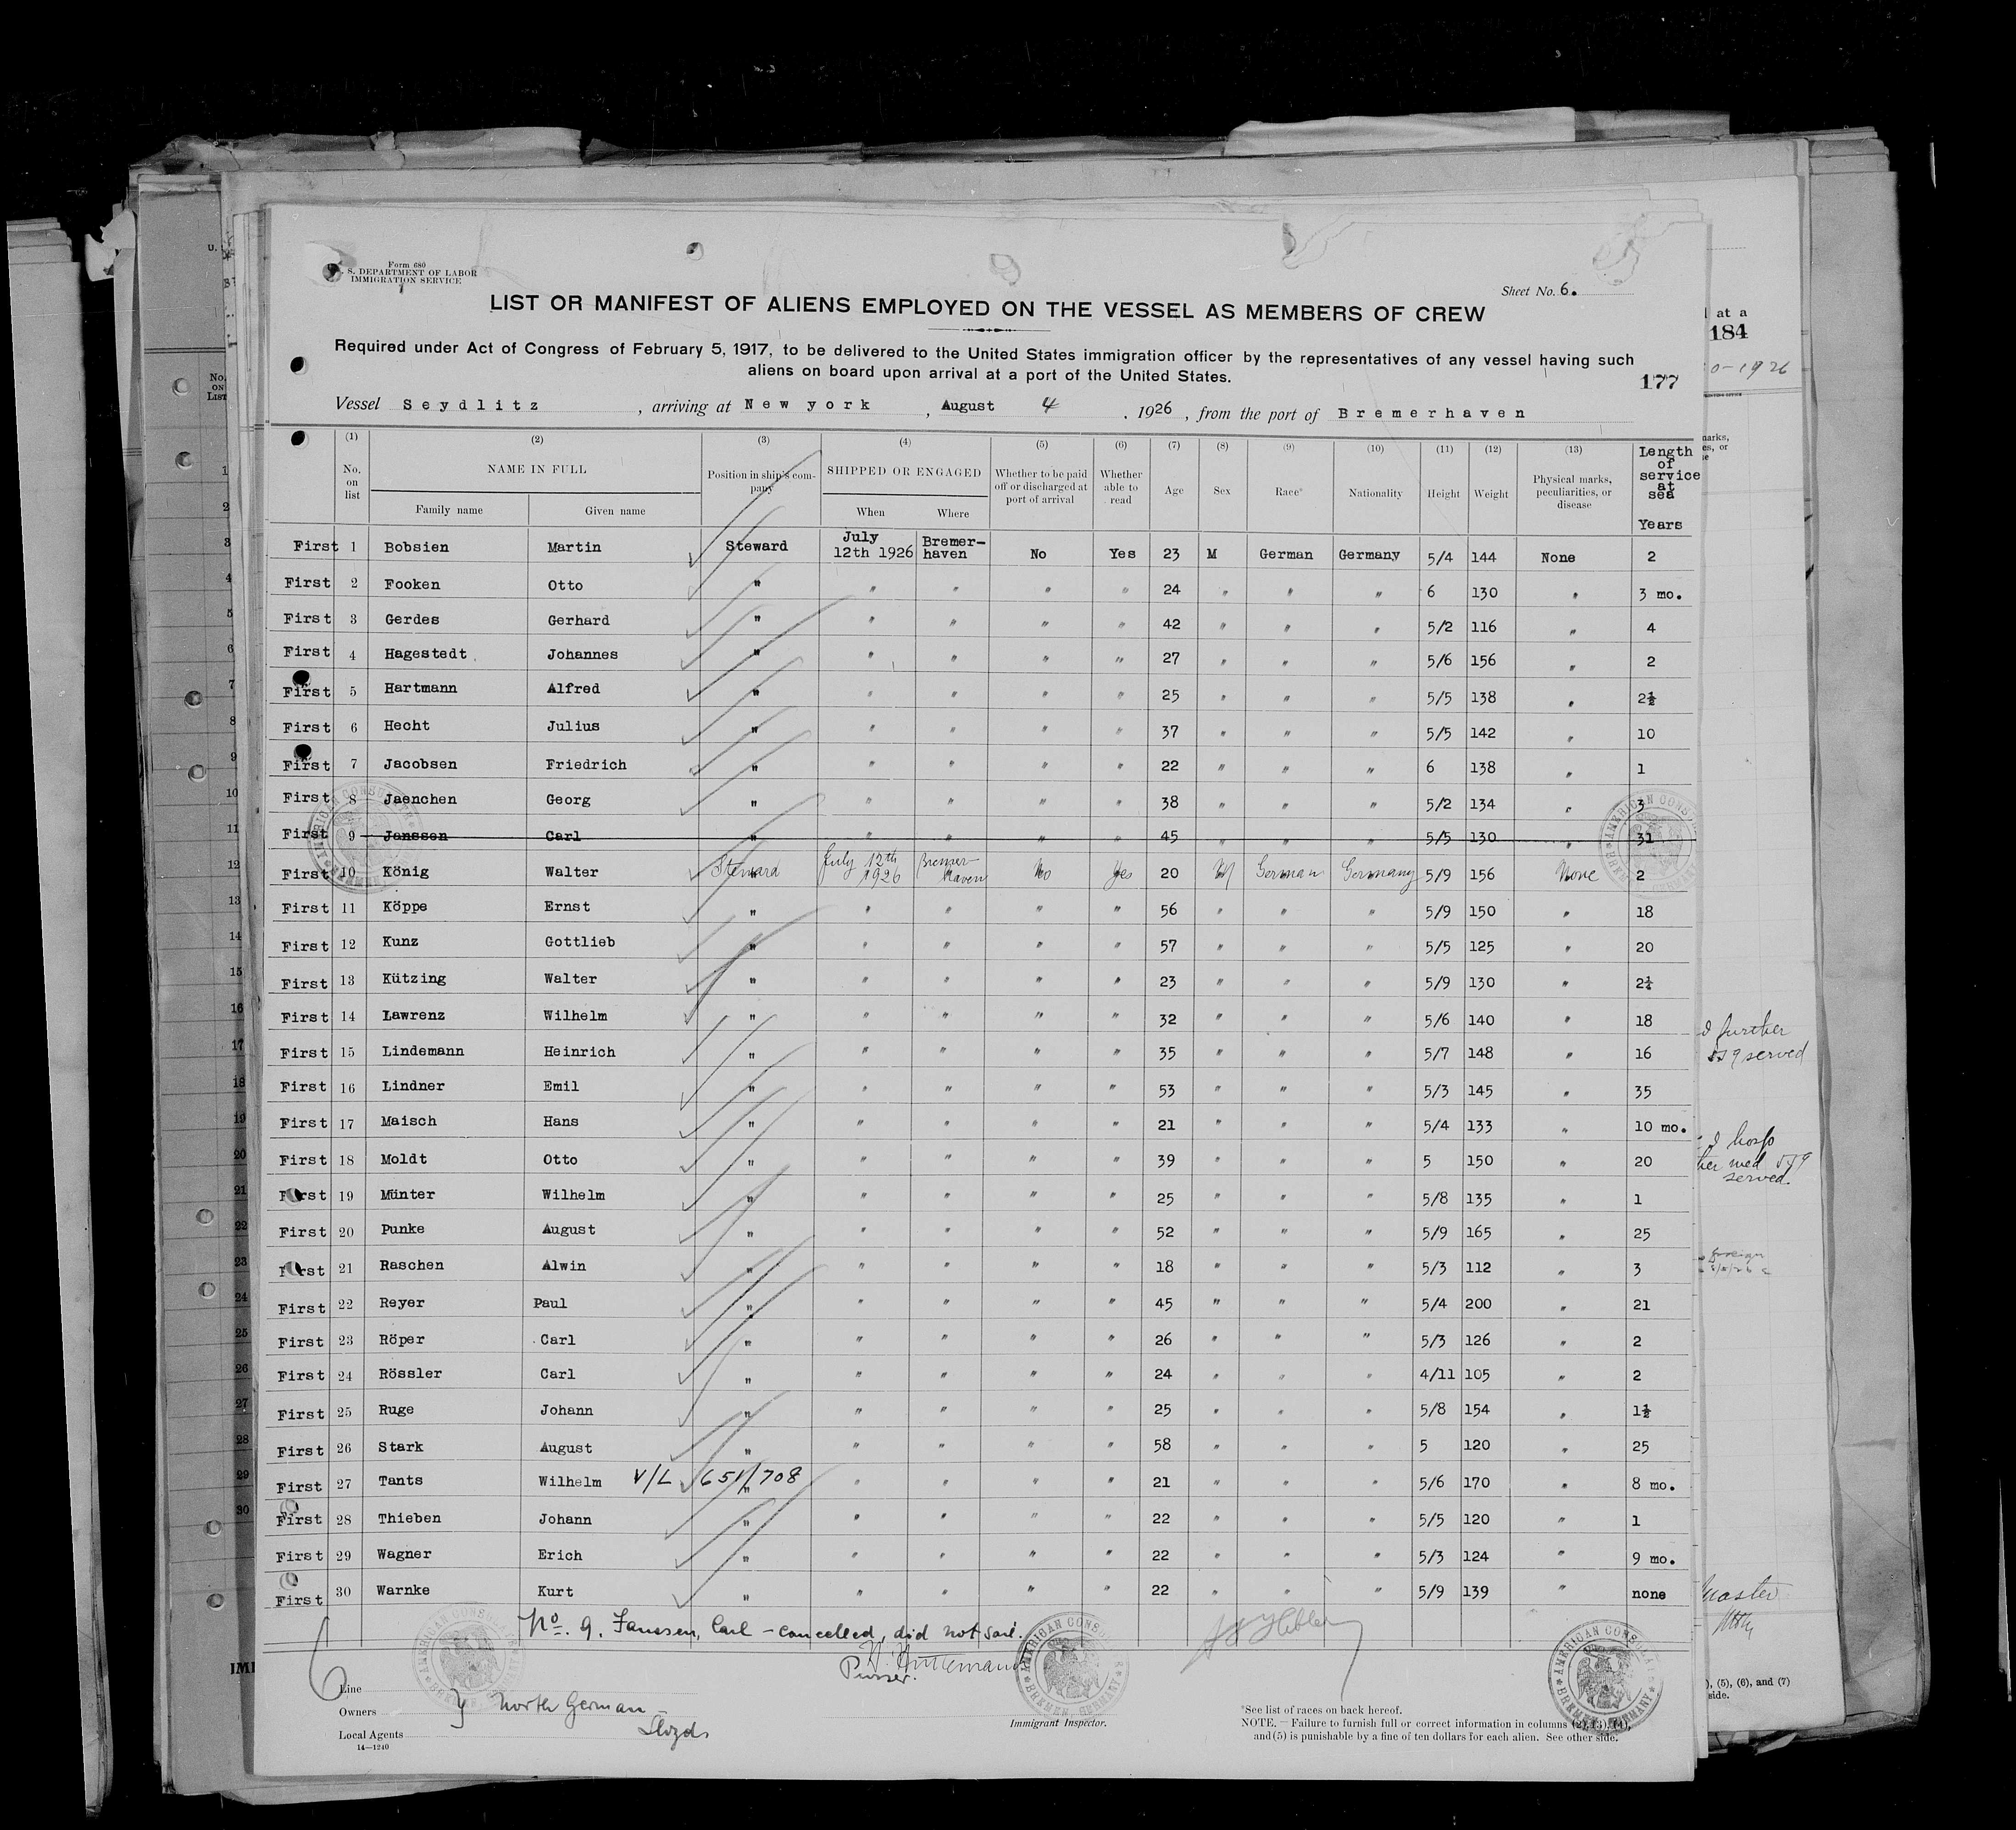 Form 680
S. DEPARTMENT OF LABOR
IMMIGRATION SERVICE
Sheet No. 6.
LIST OR MANIFEST OF ALIENS EMPLOYED ON THE VESSEL AS MEMBERS OF CREW
Required under Act of Congress of February 5, 1917, to be delivered to the United States immigration officer by the representatives of any vessel having such
aliens on board upon arrival at a port of the United States.
177
Vessel Seydlitz , arriving at New york , August 4 , 1926 , from the port of Bremerhaven
(1) (2) (3) (4) (5) (6) (7) (8) (9) (10) (11) (12) (13)
No. on list NAME IN FULL Family name Given name Position in ship's company SHIPPED OR ENGAGED When Where Whether to be paid off or discharged at port of arrival Whether able to read Age Sex Race* Nationality Height Weight Physical marks, peculiarities, or disease Length of service at sea Years
First 1 Bobsien Martin Steward July 12th 1926 Bremer-haven No Yes 23 M German Germany 5/4 144 None 2
First 2 Fooken Otto " " " " " 24 " " " 6 130 " 3 mo.
First 3 Gerdes Gerhard " " " " " 42 " " " 5/2 116 " 4
First 4 Hagestedt Johannes " " " " " 27 " " " 5/6 156 " 2
First 5 Hartmann Alfred " " " " " 25 " " " 5/5 138 " 2½
First 6 Hecht Julius " " " " " 37 " " " 5/5 142 " 10
First 7 Jacobsen Friedrich " " " " " 22 " " " 6 138 " 1
First 8 Jaenchen Georg " " " " " 38 " " " 5/2 134 " 3
First 9 Janssen Carl " " " " " 45 " " " 5/5 130 " 31
First 10 König Walter Steward July 12th 1926 Bremer-haven No Yes 20 M German Germany 5/9 156 None 2
First 11 Köppe Ernst " " " " " 56 " " " 5/9 150 " 18
First 12 Kunz Gottlieb " " " " " 57 " " " 5/5 125 " 20
First 13 Kützing Walter " " " " " 23 " " " 5/9 130 " 2¼
First 14 Lawrenz Wilhelm " " " " " 32 " " " 5/6 140 " 18
First 15 Lindemann Heinrich " " " " " 35 " " " 5/7 148 " 16
First 16 Lindner Emil " " " " " 53 " " " 5/3 145 " 35
First 17 Maisch Hans " " " " " 21 " " " 5/4 133 " 10 mo.
First 18 Moldt Otto " " " " " 39 " " " 5 150 " 20
First 19 Münter Wilhelm " " " " " 25 " " " 5/8 135 " 1
First 20 Punke August " " " " " 52 " " " 5/9 165 " 25
First 21 Raschen Alwin " " " " " 18 " " " 5/3 112 " 3
First 22 Reyer Paul " " " " " 45 " " " 5/4 200 " 21
First 23 Röper Carl " " " " " 26 " " " 5/3 126 " 2
First 24 Rössler Carl " " " " " 24 " " " 4/11 105 " 2
First 25 Ruge Johann " " " " " 25 " " " 5/8 154 " 1½
First 26 Stark August " " " " " 58 " " " 5 120 " 25
First 27 Tants Wilhelm V/L 651/708 " " " " " 21 " " " 5/6 170 " 8 mo.
First 28 Thieben Johann " " " " " 22 " " " 5/5 120 " 1
First 29 Wagner Erich " " " " " 22 " " " 5/3 124 " 9 mo.
First 30 Warnke Kurt " " " " " 22 " " " 5/9 139 " none
No. 9. Janssen, Carl - cancelled, did not sail.
Purser.
6
Line
Owners North German
Lloyds
Local Agents
14—1240
Immigrant Inspector.
*See list of races on back hereof.
NOTE.—Failure to furnish full or correct information in columns (2), (3), (4),
and (5) is punishable by a fine of ten dollars for each alien. See other side.
AMERICAN CONSULATE BREMEN, GERMANY
at a
184
1926
further
served
hosp
med
served
foreign
Master
(5), (6), and (7)
side.